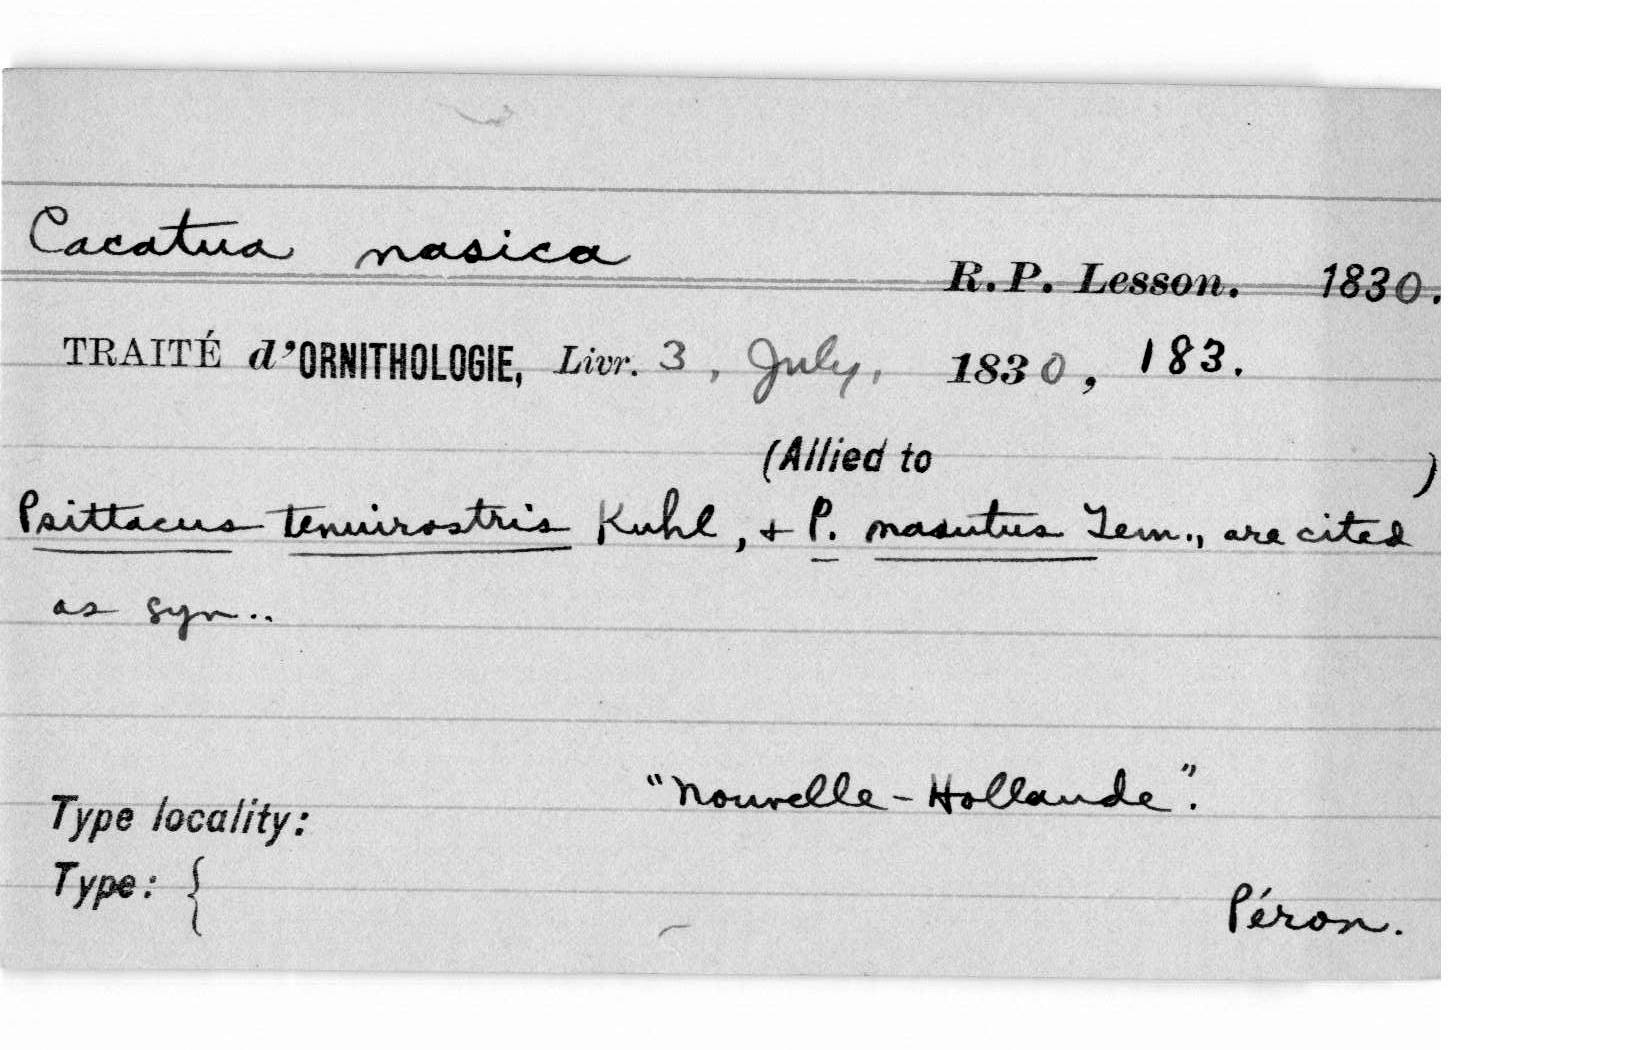 Cacatua nasica
R. P. Lesson. 1830.
TRAITÉ d'ORNITHOLOGIE, Livr. 3, July, 1830, 183.
(Allied to )
Psittacus tenuirostris Kuhl, + P. nasutus Tem., are cited
as syn..
Type locality: "Nouvelle-Hollande".
Type: {
Péron.